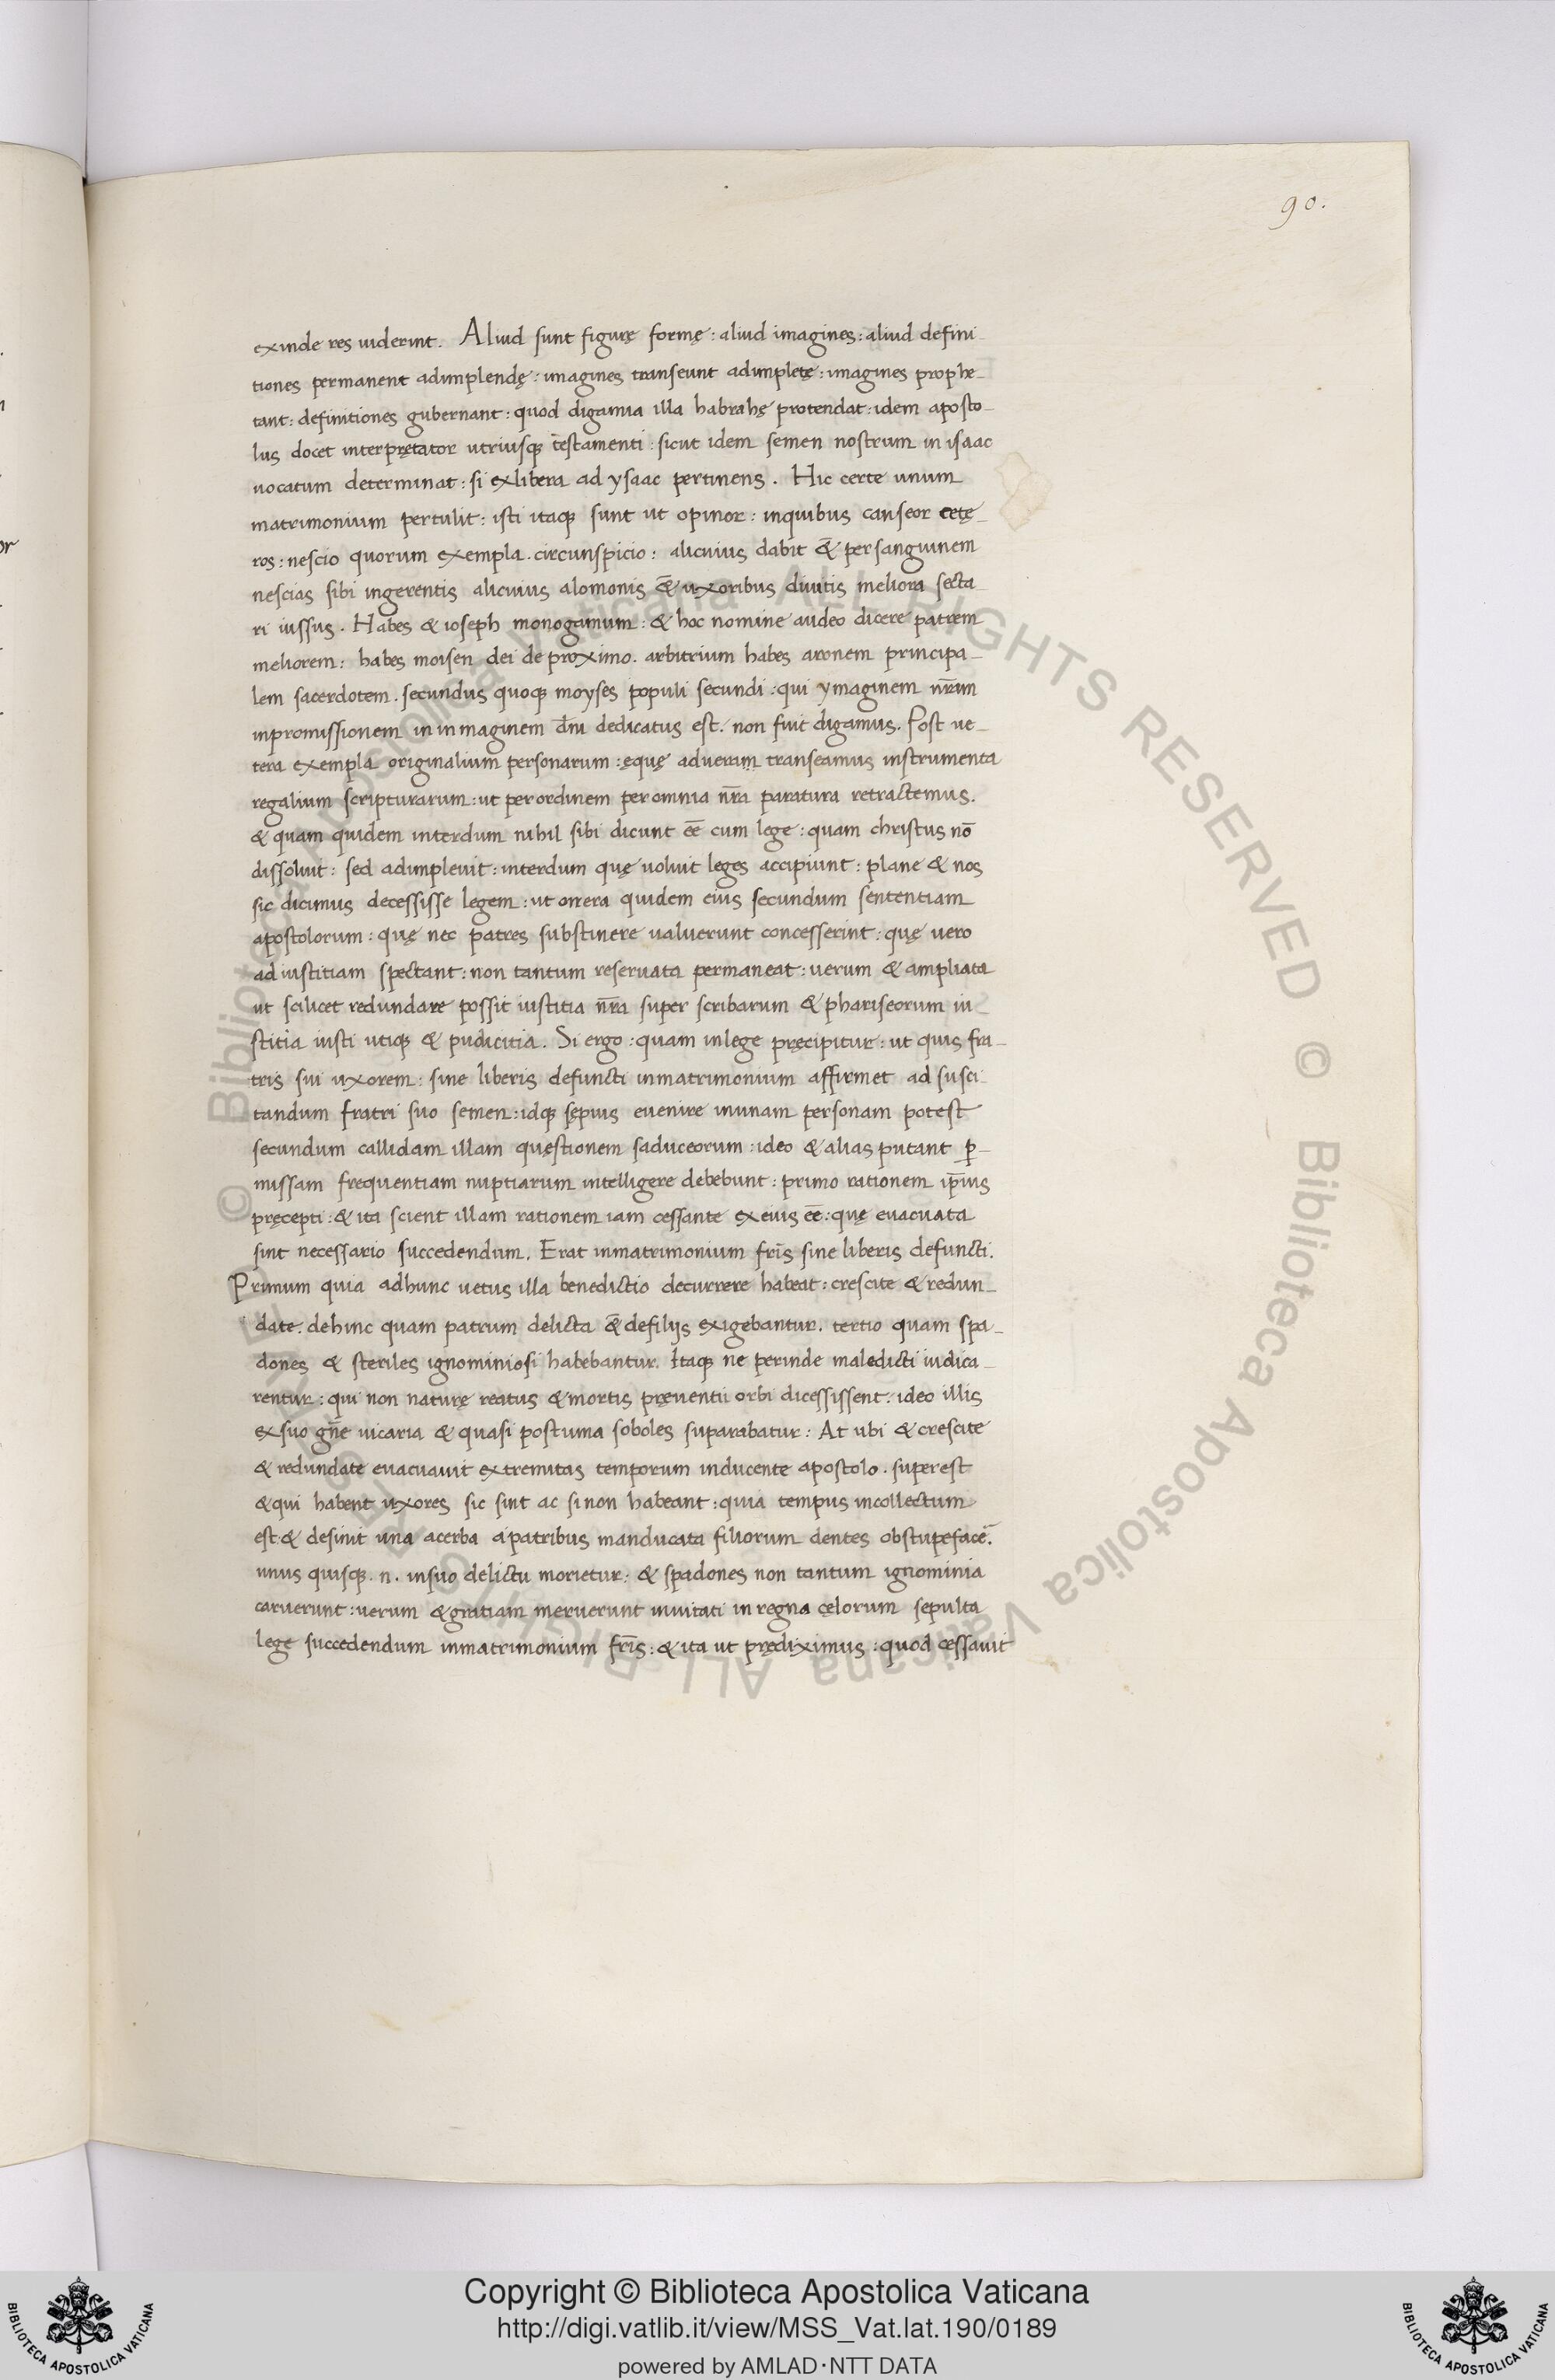 90.
exinde res uiderint. Aliud sunt figurę formę: aliud imagines: aliud defini-
tiones permanent adimplendę: imagines transeunt adimpletę: imagines prophe-
tant: definitiones gubernant: quod digamia illa habrahę protendat: idem aposto-
lus docet interpretator utriusq; testamenti: sicut idem semen nostrum in isaac
uocatum determinat: si exlibera ad ysaac pertinens. Hic certe unum
matrimonium pertulit: isti itaq; sunt ut opinor: inquibus canseor cetę-
ros: nescio quorum exempla. circunspicio: alicuius dabit &̄ persanguinem
nescias sibi ingerentis alicuius alomonis &̄ uxoribus diuitis meliora secta-
ri iussus. Habes & ioseph monogamum: & hoc nomine audeo dicere patrem
meliorem: habes moisen dei de proximo. arbitrium habes aronem principa-
lem sacerdotem. secundus quoq; moyses populi secundi: qui ymaginem nr̄am
inpromissionem in inmaginem dn̄i dedicatus est. non fuit digamus. Post ue-
tera exempla originalium personarum: ęquę adueram transeamus instrumenta
regalium scripturarum: ut perordinem peromnia nr̄a paratura retractemus.
& quam quidem interdum nihil sibi dicunt eē cum lege: quam christus nō
dissoluit: sed adimpleuit: interdum quę uoluit leges accipiunt: plane & nos
sic dicimus decessisse legem: ut onera quidem eius secundum sententiam
apostolorum: quę nec patres substinere ualuerunt concesserint: quę uero
ad iustitiam spectant: non tantum reseruata permaneat: uerum & ampliata
ut scilicet redundare possit iustitia nr̄a super scribarum & phariseorum iu-
stitia iusti utiq; & pudicitia. Si ergo: quam inlege pręcipitur: ut quis fra-
tris sui uxorem: sine liberis defuncti inmatrimonium affirmet ad susci-
tandum fratri suo semen: idq; sępius euenire inunam personam potest
secundum callidam illam quęstionem saduceorum: ideo & alias putant ꝑ-
missam frequentiam nuptiarum intelligere debebunt: primo rationem ip̄ius
pręcepti: & ita scient illam rationem iam cessante exeius eē: quę euacuata
sint necessario succedendum. Erat inmatrimonium fr̄is sine liberis defuncti.
Primum quia adhunc uetus illa benedictio decurrere habeat: crescite & redun-
date. dehinc quam patrum delicta &̄ defilijs exigebantur. tertio quam spa-
dones & steriles ignominiosi habebantur. Itaq; ne perinde maledicti iudica-
rentur: qui non naturę reatus & mortis pręuentii orbi dicessissent: ideo illis
exsuo gn̄e uicaria & quasi postuma soboles suparabatur: At ubi & crescite
& redundate euacuauit extremitas temporum inducente apostolo. superest
& qui habent uxores sic sint ac sinon habeant: quia tempus incollectum
est & desinit una acerba apatribus manducata filiorum dentes obstupefacē.
unus quisq;. n. insuo delictu morietur: & spadones non tantum ignominia
caruerunt: uerum & gratiam meruerunt inuitati in regna cęlorum sepulta
lege succedendum inmatrimonium fr̄is: & ita ut prędiximus: quod cessauit
© Biblioteca Apostolica Vaticana ALL RIGHTS RESERVED
© Biblioteca Apostolica Vaticana ALL RIGHTS RESERVED
Copyright © Biblioteca Apostolica Vaticana
http://digi.vatlib.it/view/MSS_Vat.lat.190/0189
powered by AMLAD·NTT DATA
BIBLIOTECA APOSTOLICA VATICANA
BIBLIOTECA APOSTOLICA VATICANA